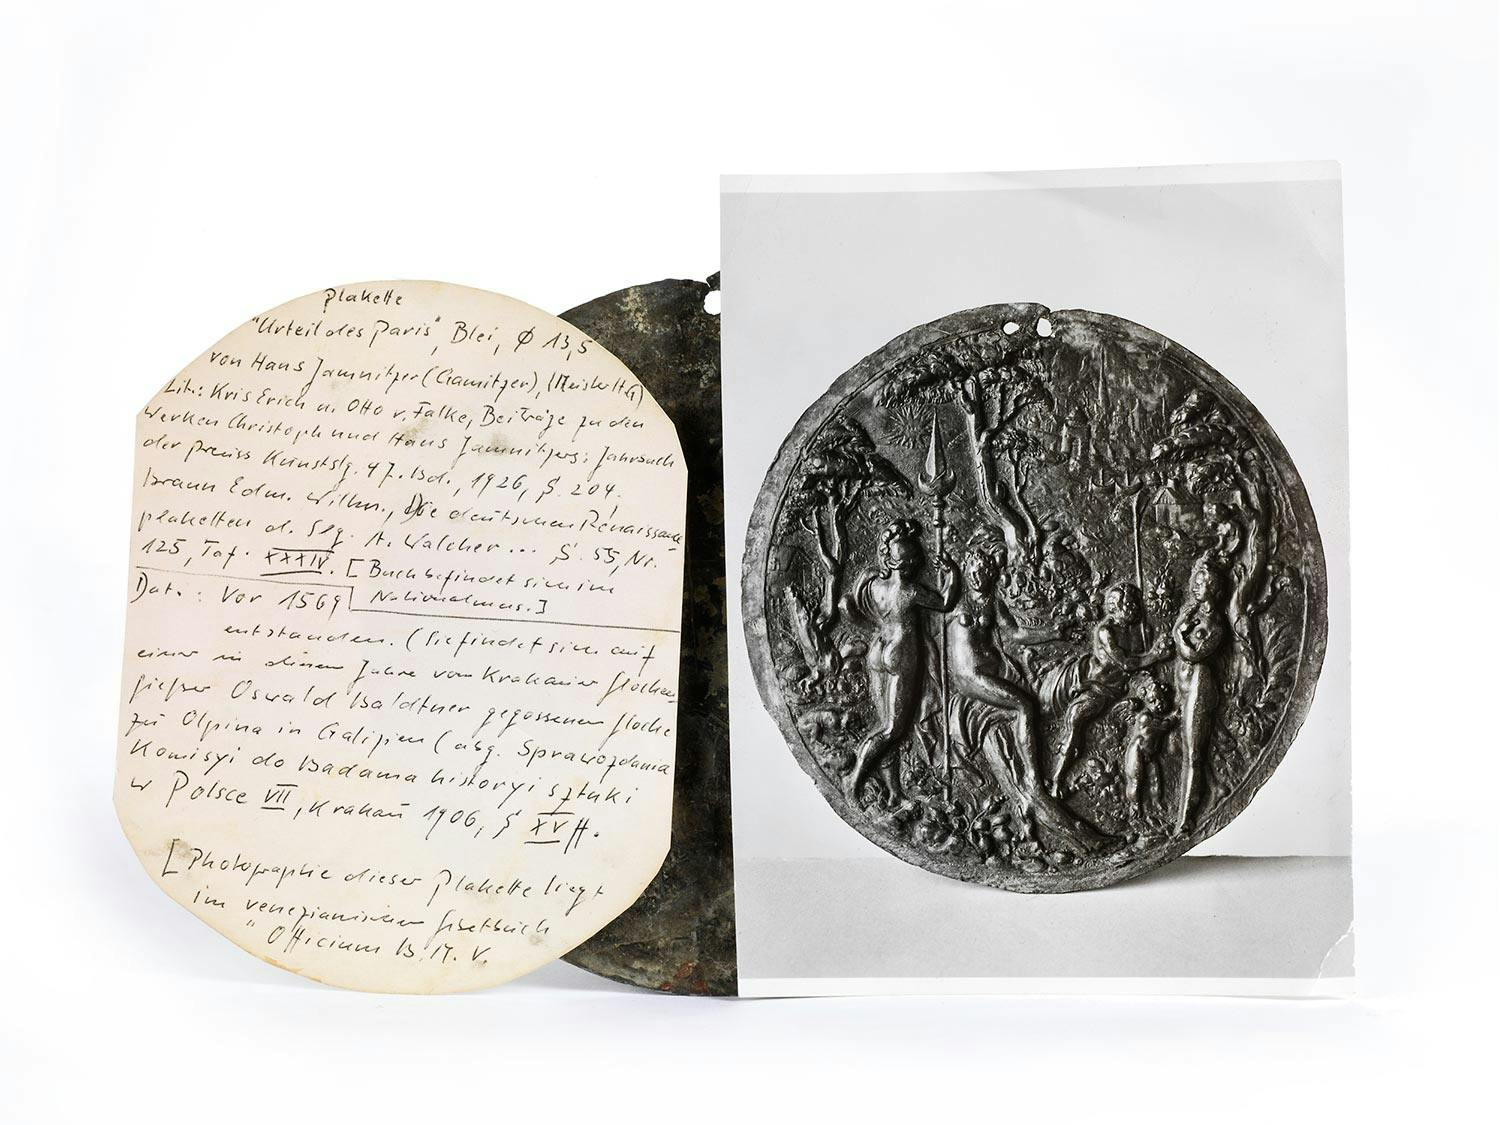 Plakette
"Urteil des Paris", Blei, Ø 13,5
von Hans Jamnitzer (Gamitzer), (Meister HG)
Lit.: Kris Erich u. Otto v. Falke, Beiträge zu den
Werken Christoph und Hans Jamnitzers: Jahrbuch
der preuss Kunstslg. 47. Bd., 1926, S. 204.
Braun Edm. Wilhm., Die deutschen Renaissance
plaketten d. Slg. A. Walcher ... S. 55, Nr.
125, Taf. XXXIV. [Buch befindet sich im
Nationalmus.]
Dat.: Vor 1569
entstanden. (Befindet sich auf
einer in diesem Jahre vom Krakauer Glocken
gießer Oswald Baldtner gegossenen Glocke
zu Olpina in Galizien (abg. Sprawozdania
Komisyi do Badama historyi sztuki
w Polsce VII, Krakau 1906, S XV H.
[Photographie dieser Plakette liegt
im venezianischen Gebetbuch
"Officium B. M. V.